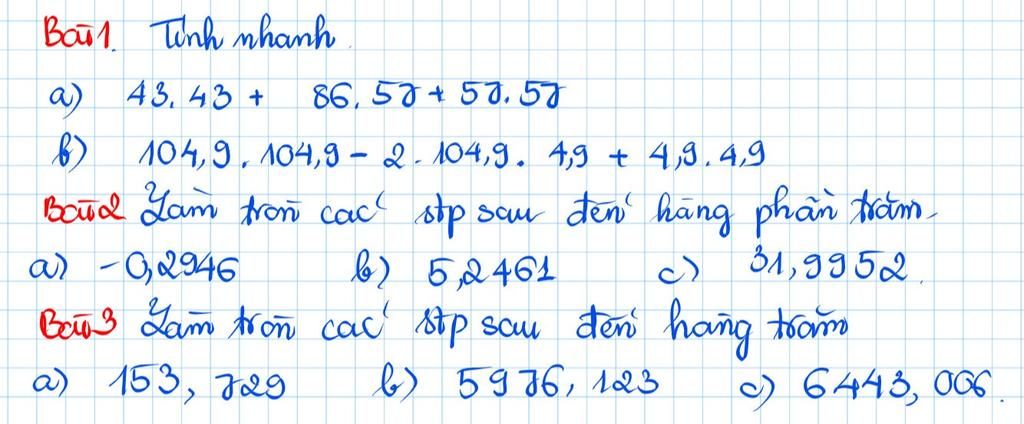 Bài 1. Tính nhanh
a) 43.43 + 86.57 + 57.57
b) 104,9.104,9 - 2.104,9.4,9 + 4,9.4,9
Bài 2 Làm tròn các stp sau đến hàng phần trăm.
a) -0,2946 b) 5,2461 c) 31,9952.
Bài 3 Làm tròn các stp sau đến hàng trăm
a) 153,729 b) 5976,123 c) 6443,006.